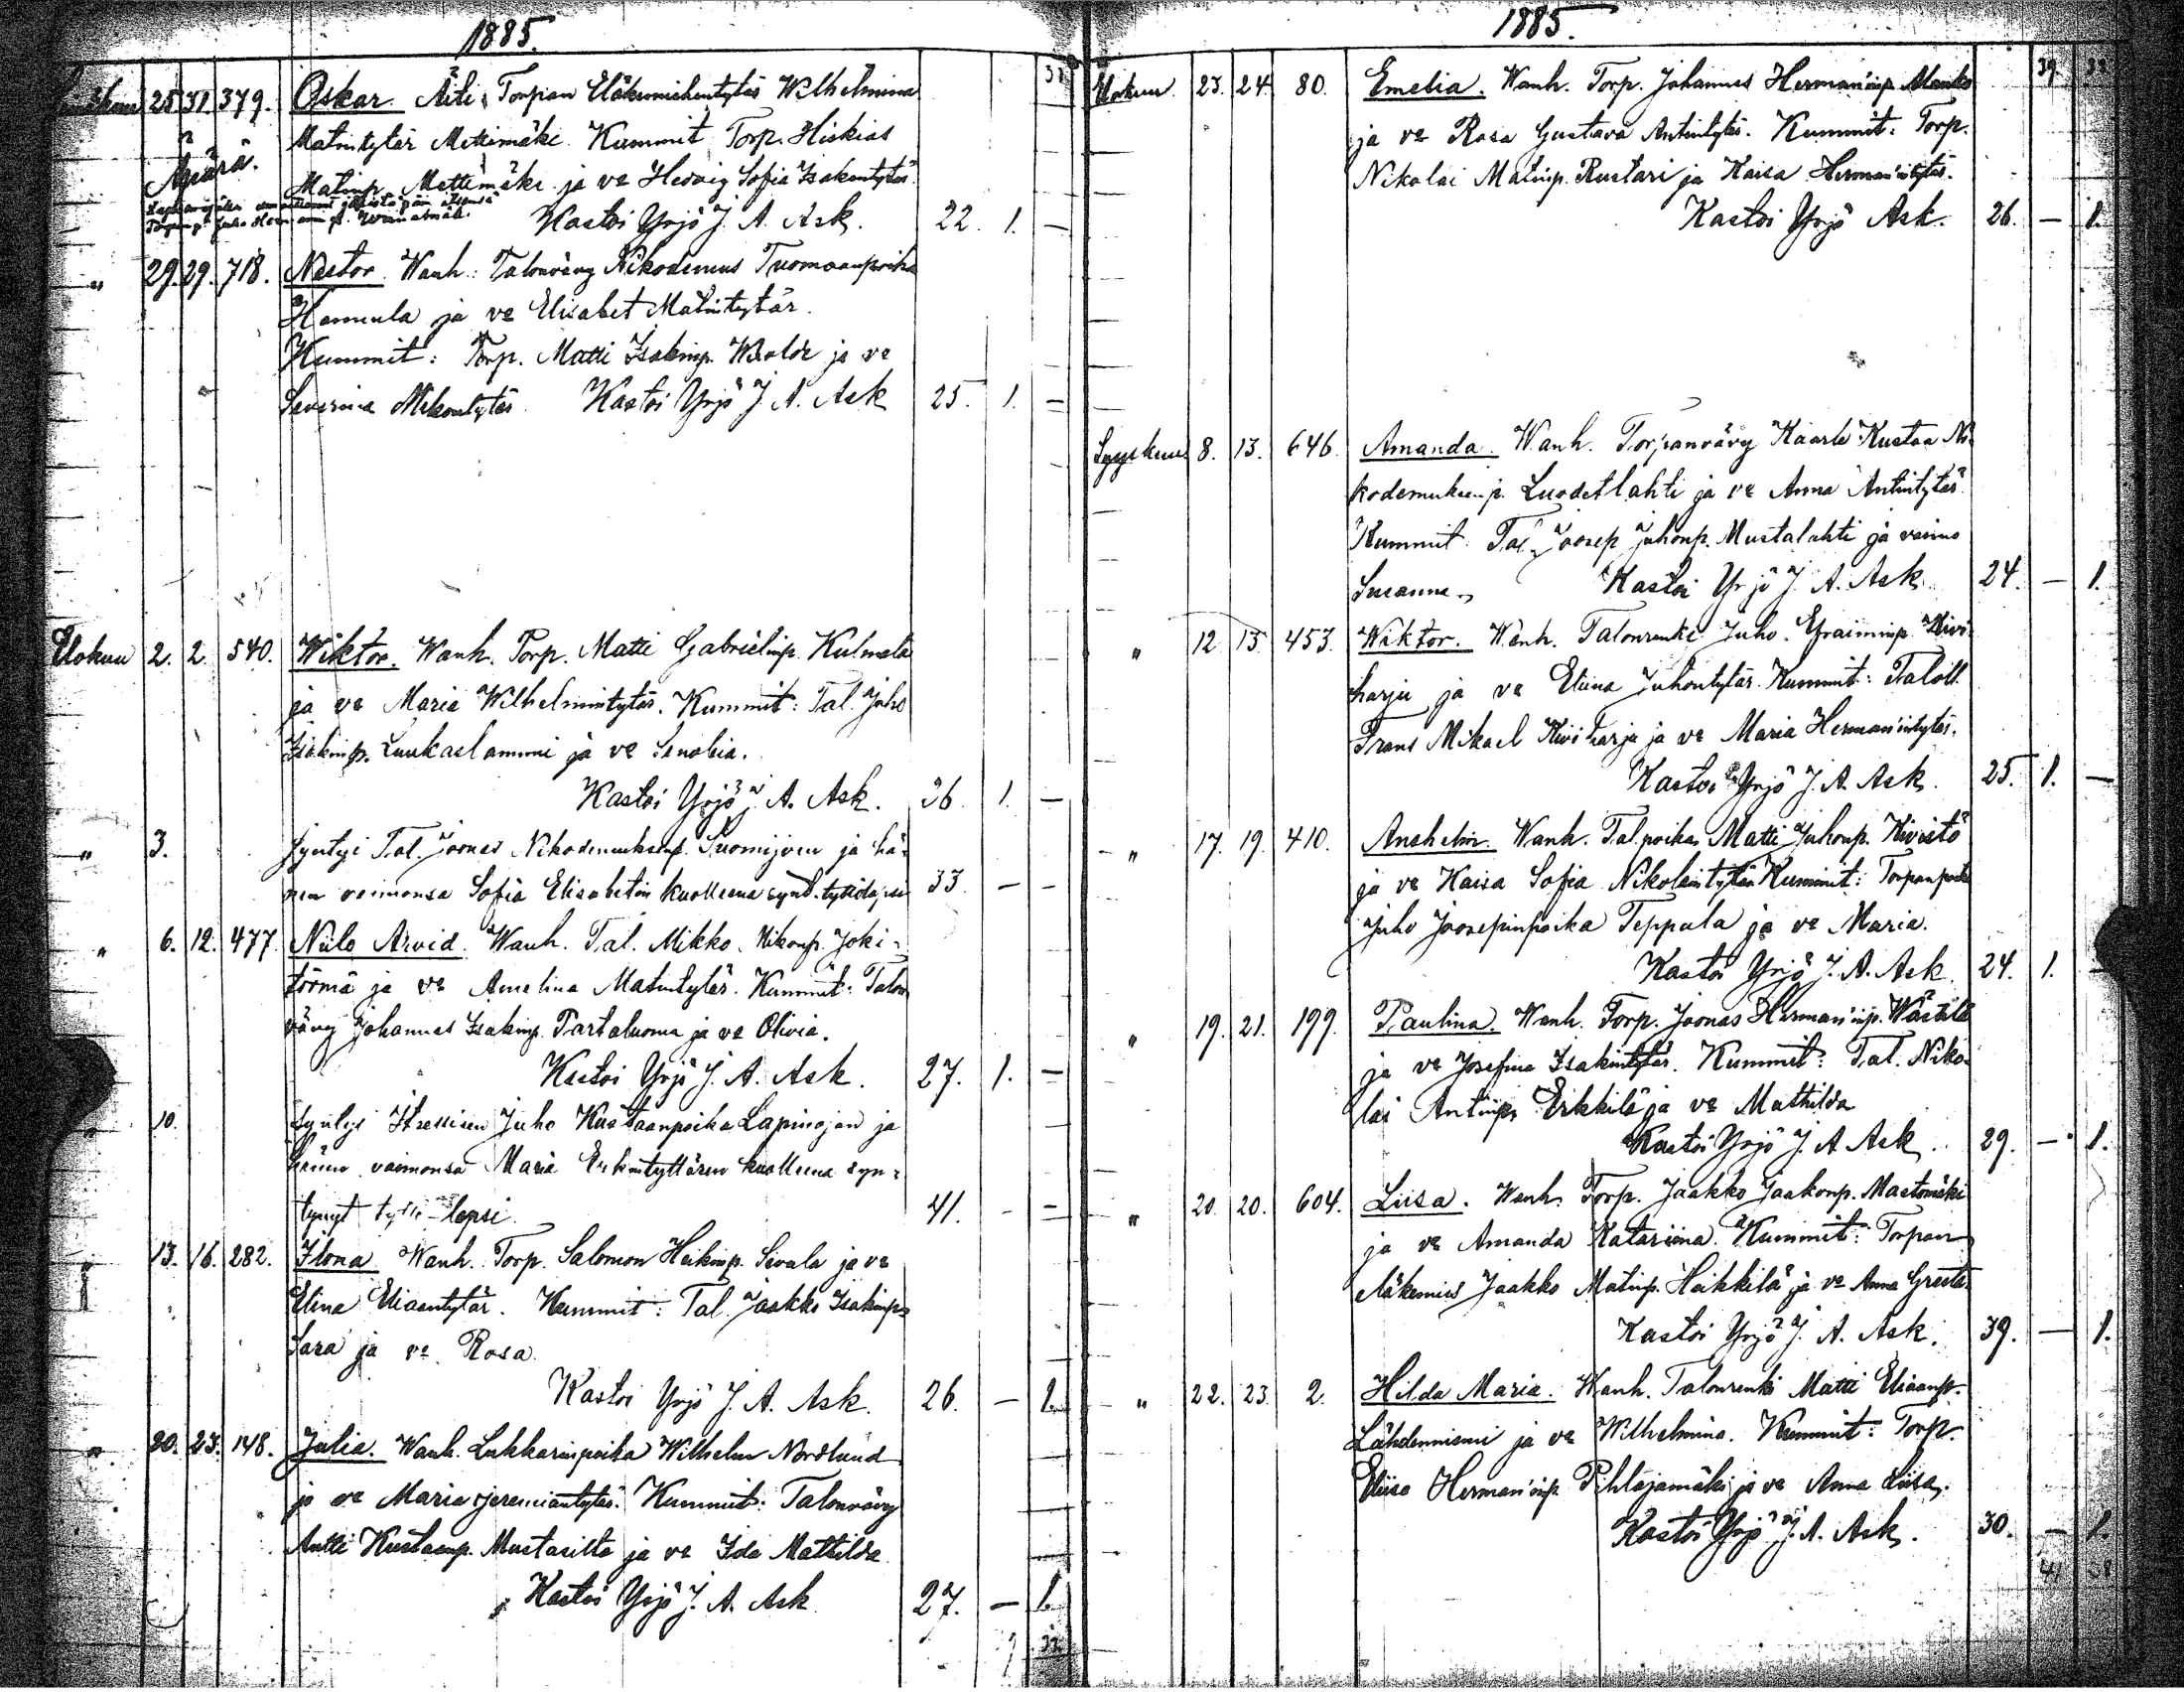 1885.
25. 31. 379. Oskar. Äiti, Torpan Eläkemiehentytär Wilhelmina
Matintytär Mettimäki. Kummit Torp. Hiskias
Äpärä.
Matinp. Mettimäki ja vo Hedvig Sofia Isakintytär.
Kastoi Yrjö J. A. Ask. 22. 1. —
" 29. 29. 718. Nestor. Wanh.: Talonvävy Nikodemus Tuomaanpoika
Hannula ja vo Elisabet Matintytär.
Kummit: Torp. Matti Isakinp. ja vo
Severina Mikontytär. Kastoi Yrjö J. A. Ask 25. 1. —
Elokuu 2. 2. 540. Wiktor. Wanh. Torp. Matti Gabrielinp. Kulmala
ja vo Maria Wilhelmintytär. Kummit: Tal. Juho
Isakinp. Luukaslammi ja vo Senobia.
Kastoi Yrjö J. A. Ask. 26. 1. —
" 3. Syntyi Tal. Joonas Nikodemuksenp. Suomijoen ja hä-
nen vaimonsa Sofia Elisabetin kuolleena synt. 33 — —
" 6. 12. 477. Niilo Arvid. Wanh. Tal. Mikko Mikonp. Joki-
törmä ja vo Amelina Matintytär. Kummit: Talon
vävy Johannes Isakinp. Partaluoma ja vo Olivia.
Kastoi Yrjö J. A. Ask. 27. 1. —
10. Syntyi Itsellisen Juho Kustaanpoika Lapinojan ja
hänen vaimonsa Maria Erkintyttären kuolleena syn-
tynyt lapsi. 41. — —
13. 16. 282. Ilona. Wanh. Torp. Salomon Heikinp. Sivula ja vo
Elina Eliaantytär. Kummit: Tal. Jaakko Isakinp.
Sara ja vo Rosa.
Kastoi Yrjö J. A. Ask. 26. — 1.
" 20. 23. 148. Julia. Wanh. Lukkarinpoika Wilhelm Nordlund
ja vo Maria Jeremiantytär. Kummit: Talonvävy
Antti Kustaanp. Mustasilta ja vo Ida Mathilda
Kastoi Yrjö J. A. Ask 27. — 1.
1885.
Elokuu 23. 24. 80. Emelia. Wanh. Torp. Johannes Herman'inp.
ja vo Rosa Gustava Antintytär. Kummit: Torp.
Nikolai Matinp. Rustari ja Kaisa Herman'intytär.
Kastoi Yrjö Ask. 26. — 1.
Syyskuu 8. 13. 646. Amanda. Wanh. Torpanvävy Kaarle Kustaa Ni-
kodemuksenp. Luodetlahti ja vo Anna Antintytär
Kummit: Tal. Joosep Juhonp. Mustalahti ja vaimo
Susanna. Kastoi Yrjö J. A. Ask. 24. — 1.
" 12. 13. 453. Wiktor. Wanh. Talonrenki Juho Efraiminp. Kivi-
harju ja vo Eliina Juhontytär. Kummit: Taloll.
Frans Mikael Kiviharju ja vo Maria Herman'intytär.
Kastoi Yrjö J. A. Ask. 25. 1. —
" 17. 19. 410. Anshelm. Wanh. Tal. poika Matti Juhonp. Kivistö
ja vo Kaisa Sofia Nikolaintytär Kummit: Torpanpoika
Juho Joosepinpoika Teppula ja vo Maria.
Kastoi Yrjö J. A. Ask. 24. 1. —
" 19. 21. 199. Paulina. Wanh. Torp. Joonas Herman'inp. Wästilä
ja vo Josefina Isakintytär. Kummit: Tal. Niko-
lai Antinp. Erkkilä ja vo Mathilda
Kastoi Yrjö J. A. Ask. 29. — 1.
" 20. 20. 604. Liisa. Wanh. Torp. Jaakko Jaakonp. Mastomäki
ja vo Amanda Katariina. Kummit: Torpan
eläkemies Jaakko Matinp. Heikkilä ja vo Anna Greeta.
Kastoi Yrjö J. A. Ask. 39. — 1.
" 22. 23. 2. Hilda Maria. Wanh. Talonrenki Matti Eliaanp.
Lähdenniemi ja vo Wilhelmina. Kummit: Torp.
Herman'inp. Pihlajamäki ja vo Anna Liisa.
Kastoi Yrjö J. A. Ask. 30. — 1.